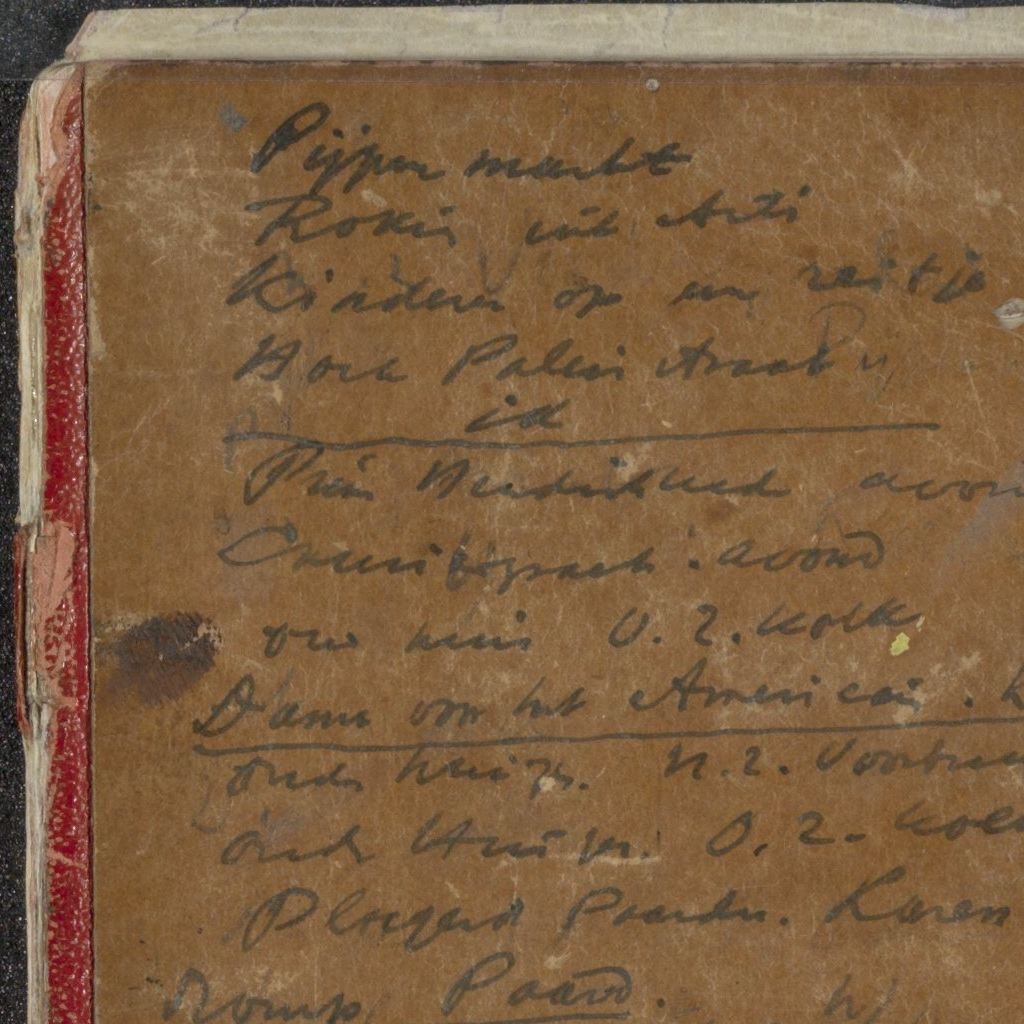 Pijpen markt
Rokin uit Arti
Kinderen op een reitje
Hoek Paleis straat
id
Prins Hendrikkade avon
gracht. avond
oud huis O. Z. Kolk
Dame voor het Americain.
oude huisjes. N. Z. Voorbu
oude Huisjes. O. Z. Kolk
Ploegend Paarden. Laren
Romp Paard.